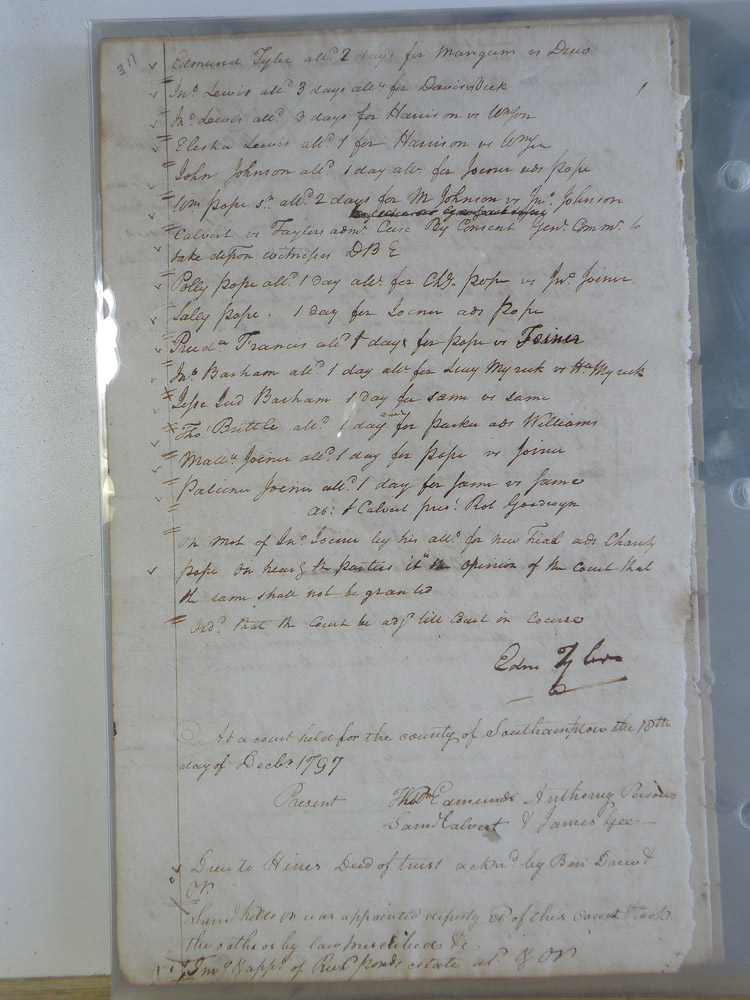 317
Edmund Tyler allᵈ 2 days for Mangum vs Drew
Jnº Lewis allᵈ 3 days allᵉ for Davis vs
Jnº Lewis allᵈ 3 days for Harrison vs
Lewis allᵈ 1 for Harrison vs
John Johnson allᵈ 1 day allᵉ for Joiner ads pope
Wm pope Sʳ allᵈ 2 days for M Johnson vs Jnº Johnson
Calvert vs Taylors admʳ Case By Consent Genˡ Commⁿ to
take depon witnesses D B E
Polly pope allᵈ 1 day allᵉ for Chʸ pope vs Jnº Joiner
Sally pope . 1 day for Joiner ads pope
Francis allᵈ 1 day for pope vs Joiner
Jnº Barham allᵈ 1 day allᵉ for Lucy Myrick vs Myrick
Jud Barham 1 day for same vs same
Thoˢ Brittle allᵈ 1 day for parker ads Williams
Matᵂ Joiner allᵈ 1 day for pope vs Joiner
Patience Joiner allᵈ 1 day for same vs same
abˢ S Calvert presᵗ Rob Goodwyn
on mot of Jnº Joiner by his attʸ for new Trial ads Charity
pope on hearᵍ the parties it is the opinion of the court that
the same shall not be granted
ordᵈ that the Court be adjᵈ till Court in Course
Edm Tyler
At a court held for the county of Southampton the 18th
day of Decbʳ 1797
Present Thoˢ Edmunds Anthony Persons
Samˡ Calvert & James Gee
Drew to Hines Deed of trust acknᵈ by Ben Drew &
OR
Samˡ was appointed deputy of this court & took
the oaths by law prescribed &c
Invʸ & appᵗ of Richᵈ ponds estate &  OR